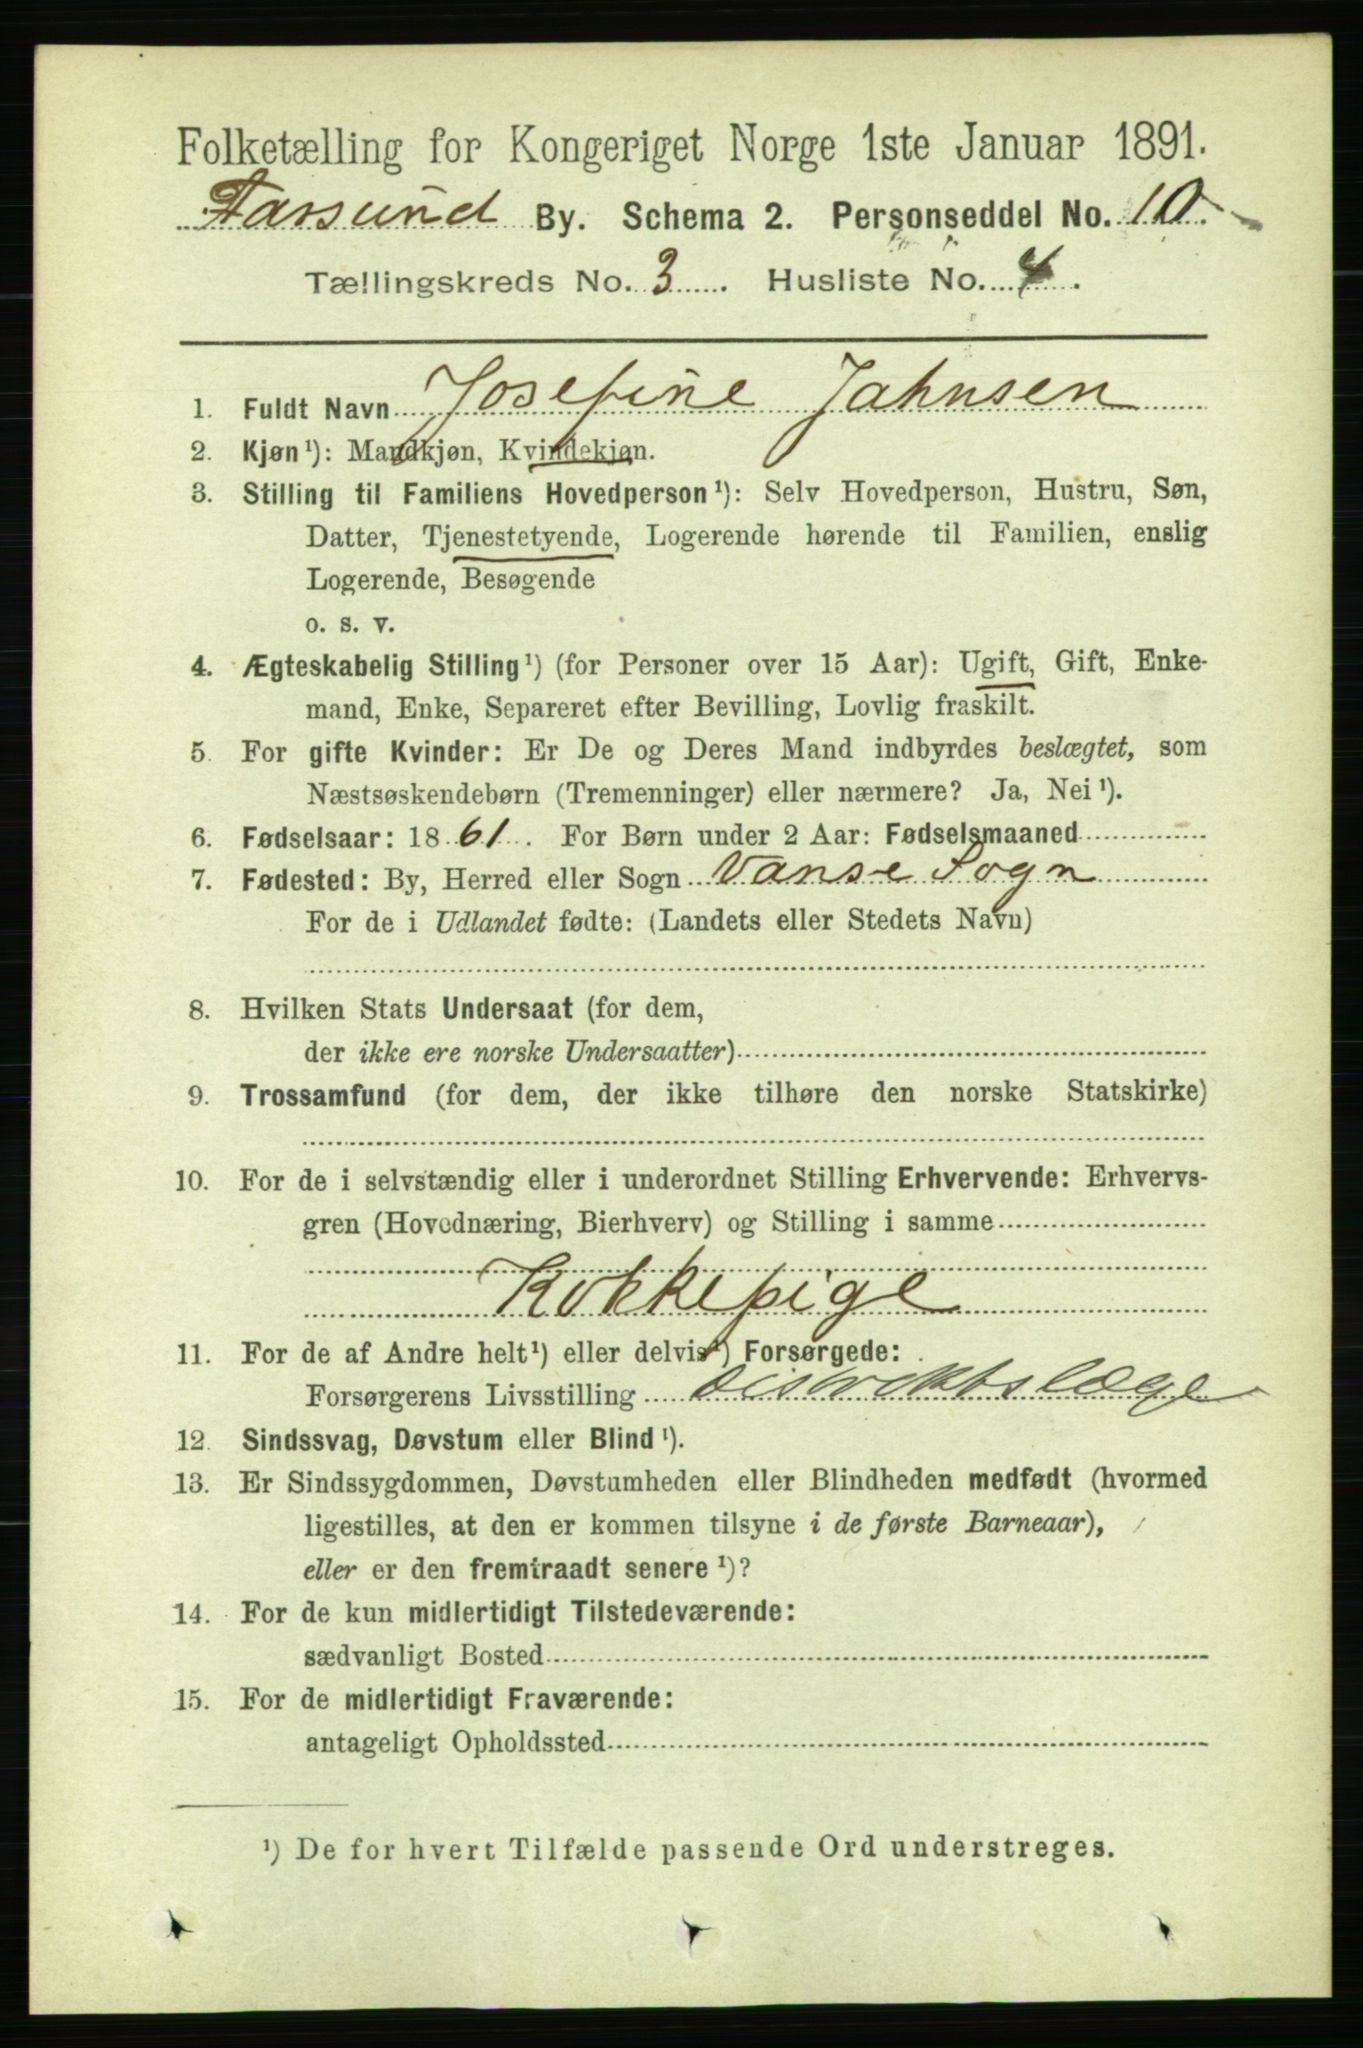 Folketælling for Kongeriget Norge 1ste Januar 1891.
Farsund By. Schema 2. Personseddel No. 10.
Tællingskreds No. 3. Husliste No. 4.
1. Fuldt Navn Josefine Jahnsen
2. Kjøn¹): Mandkjøn, Kvindekjøn.
3. Stilling til Familiens Hovedperson¹): Selv Hovedperson, Hustru, Søn,
Datter, Tjenestetyende, Logerende hørende til Familien, enslig
Logerende, Besøgende
o. s. v.
4. Ægteskabelig Stilling¹) (for Personer over 15 Aar): Ugift, Gift, Enke-
mand, Enke, Separeret efter Bevilling, Lovlig fraskilt.
5. For gifte Kvinder: Er De og Deres Mand indbyrdes beslægtet, som
Næstsøskendebørn (Tremenninger) eller nærmere? Ja, Nei¹).
6. Fødselsaar: 1861. For Børn under 2 Aar: Fødselsmaaned
7. Fødested: By, Herred eller Sogn Vanse Sogn
For de i Udlandet fødte: (Landets eller Stedets Navn)
8. Hvilken Stats Undersaat (for dem,
der ikke ere norske Undersaatter)
9. Trossamfund (for dem, der ikke tilhøre den norske Statskirke)
10. For de i selvstændig eller i underordnet Stilling Erhvervende: Erhvervs-
gren (Hovednæring, Bierhverv) og Stilling i samme
Kokkepige
11. For de af Andre helt¹) eller delvis¹) Forsørgede:
Forsørgerens Livsstilling Distriktslæge
12. Sindssvag, Døvstum eller Blind¹).
13. Er Sindssygdommen, Døvstumheden eller Blindheden medfødt (hvormed
ligestilles, at den er kommen tilsyne i de første Barneaar),
eller er den fremtraadt senere¹)?
14. For de kun midlertidigt Tilstedeværende:
sædvanligt Bosted
15. For de midlertidigt Fraværende:
antageligt Opholdssted
¹) De for hvert Tilfælde passende Ord understreges.